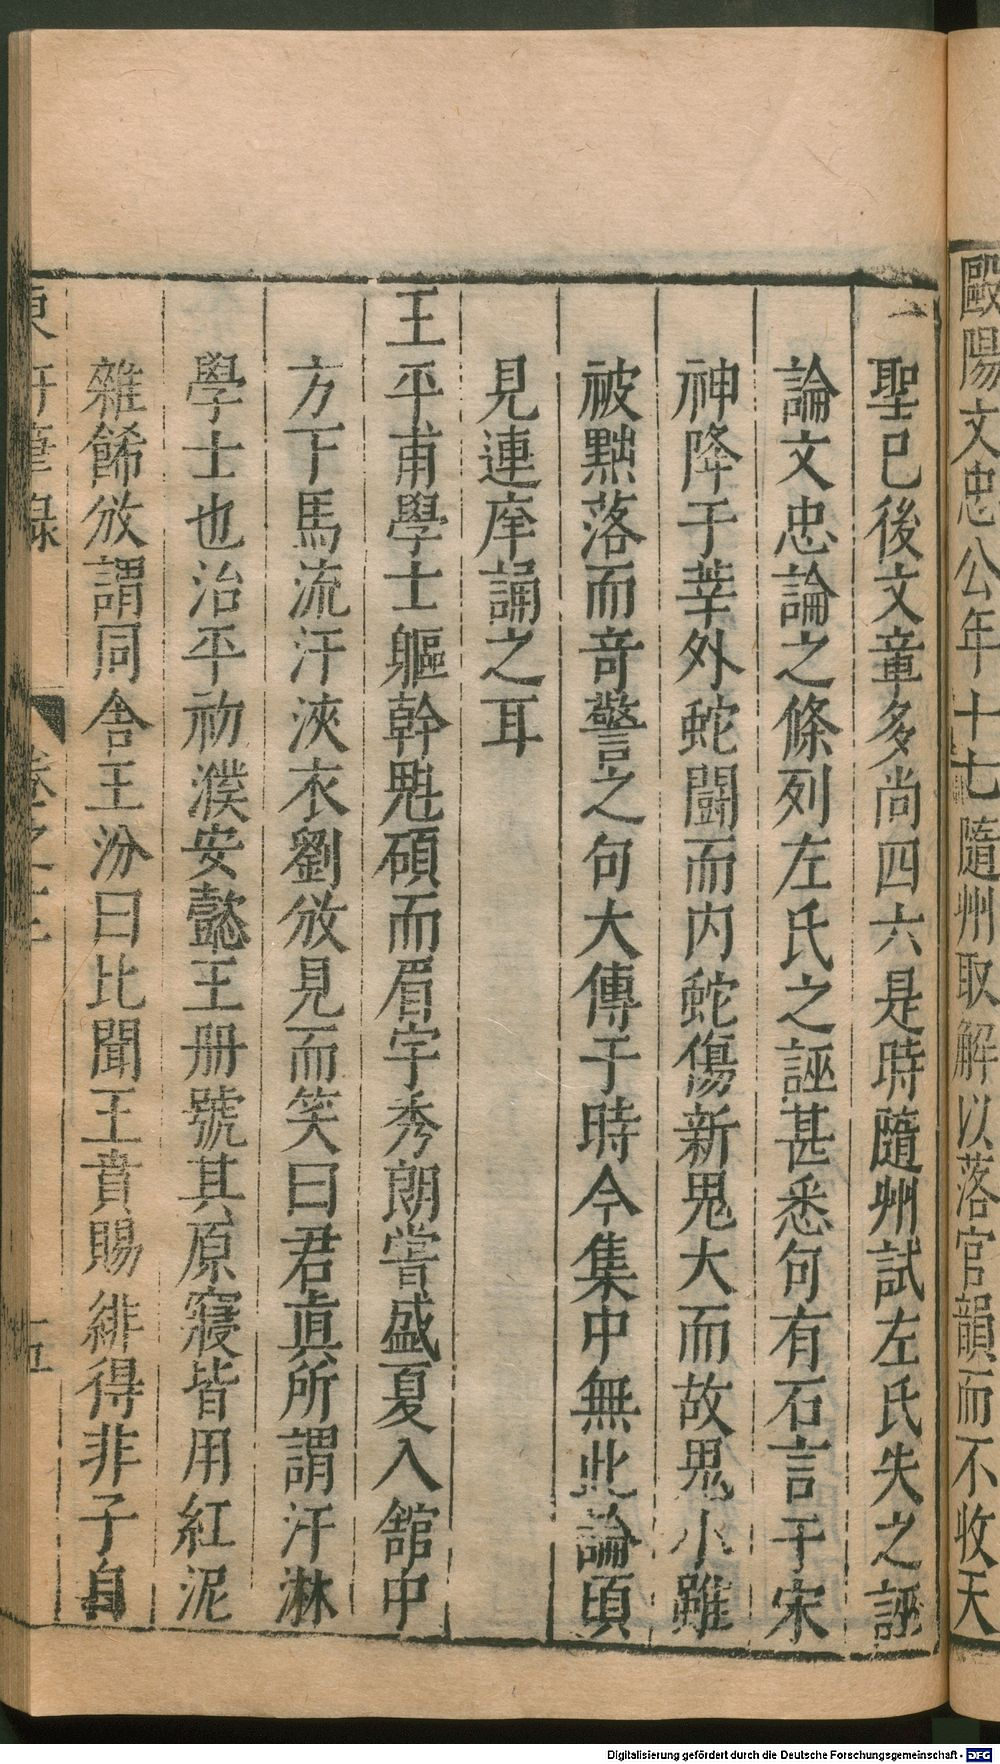 歐陽文忠公年十七隨州取解以落官韻而不收天
聖已後文章多尚四六是時隨州試左氏失之誣
論文忠論之條列左氏之誣甚悉句有石言于宋
神降于莘外蛇鬭而内蛇傷新鬼大而故鬼小雖
被黜落而竒警之句大傳于時今集中無此論頃
見連庠誦之耳
王平甫學士軀幹魁碩而眉宇秀朗嘗盛夏入舘中
方下馬流汗浹衣劉攽見而笑曰君真所謂汗淋
學士也治平初濮安懿王册號其原寢皆用紅泥
雜餙攽謂同舍王汾曰比聞王賁賜緋得非子自
東軒筆録
卷之十二
五
Digitalisierung gefördert durch die Deutsche Forschungsgemeinschaft - DFG